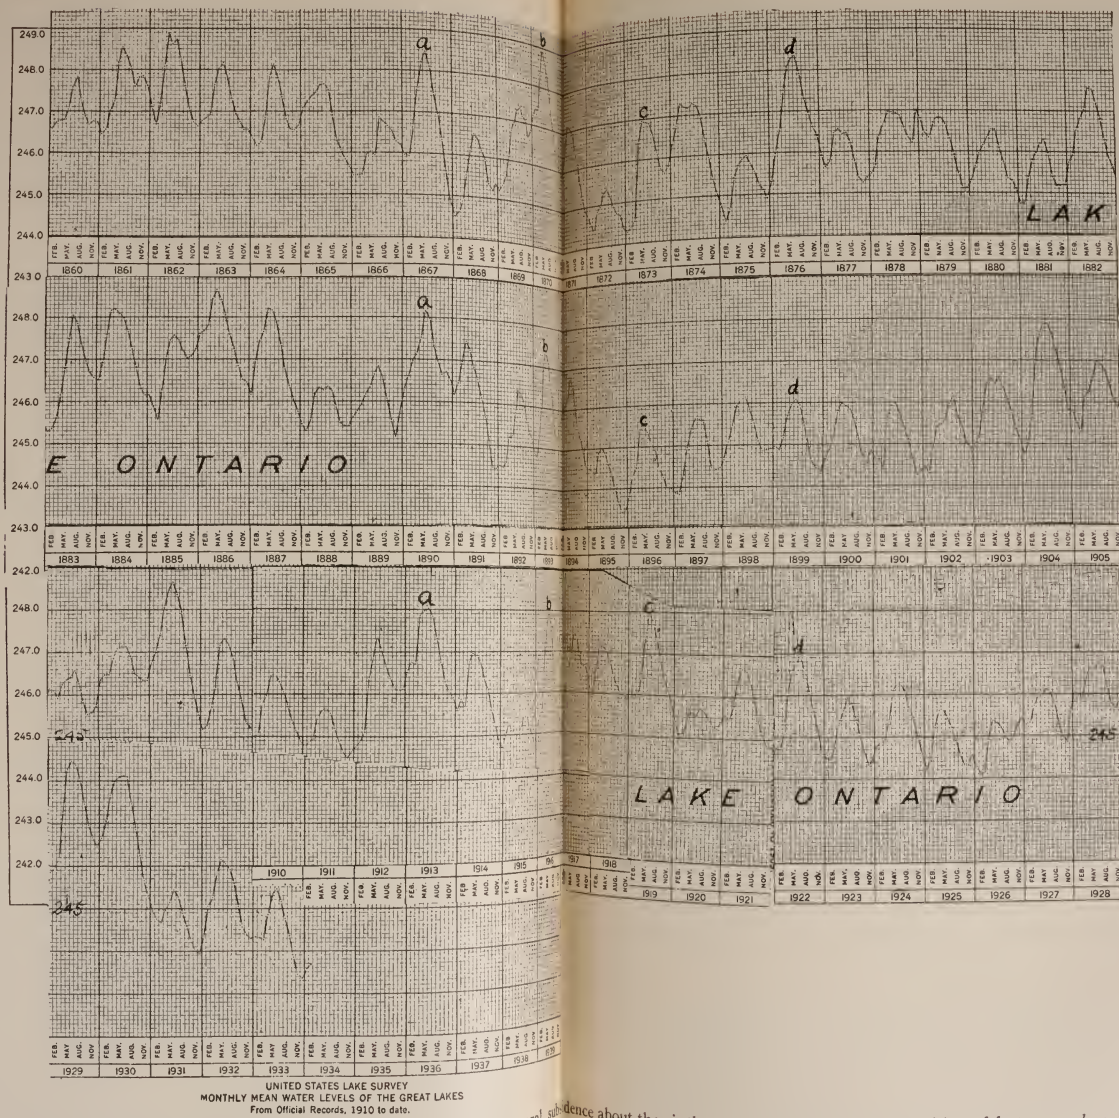 249.0
248.0
247.0
246.0
245.0
244.0
a b c d
LAK
FEB. MAY. AUG. NOV.
1860 1861 1862 1863 1864 1865 1866 1867 1868 1869 1870 1871 1872 1873 1874 1875 1876 1877 1878 1879 1880 1881 1882
243.0
248.0
247.0
246.0
245.0
244.0
243.0
a b c d
E ONTARIO
FEB. MAY. AUG. NOV.
1883 1884 1885 1886 1887 1888 1889 1890 1891 1892 1893 1894 1895 1896 1897 1898 1899 1900 1901 1902 1903 1904 1905
242.0
248.0
247.0
246.0
245.0
244.0
243.0
242.0
a b c d
245
245
LAKE ONTARIO
1910 1911 1912 1913 1914 1915 1917 1918
FEB. MAY. AUG. NOV.
1919 1920 1921 1922 1923 1924 1925 1926 1927 1928
245
FEB. MAY. AUG. NOV.
1929 1930 1931 1932 1933 1934 1935 1936 1937 1938 1939
UNITED STATES LAKE SURVEY
MONTHLY MEAN WATER LEVELS OF THE GREAT LAKES
From Official Records, 1910 to date.